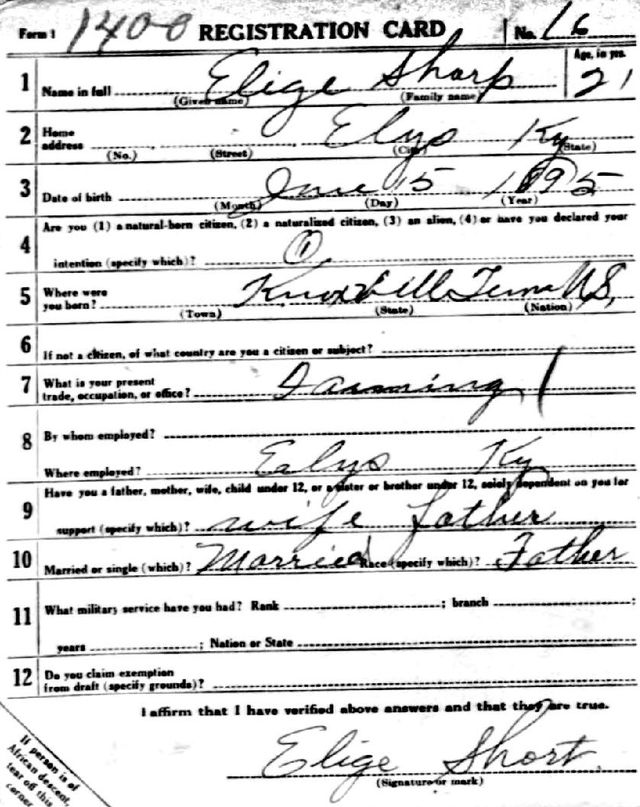 Form 1 1400 REGISTRATION CARD No. 16
1 Name in full Elige Sharp Age, in yrs. 21
(Given name) (Family name)
2 Home address Elys Ky
(No.) (Street) (City) (State)
3 Date of birth June 15 1895
(Month) (Day) (Year)
4 Are you (1) a natural-born citizen, (2) a naturalized citizen, (3) an alien, (4) or have you declared your
intention (specify which)? 1
5 Where were you born? Knoxvill Tenn U.S,
(Town) (State) (Nation)
6 If not a citizen, of what country are you a citizen or subject?
7 What is your present trade, occupation, or office? Farming 1
8 By whom employed?
Where employed? Ealys Ky
9 Have you a father, mother, wife, child under 12, or a sister or brother under 12, solely dependent on you for
support (specify which)? wife father
10 Married or single (which)? Married Race (specify which)? Father
11 What military service have you had? Rank ; branch ;
years ; Nation or State
12 Do you claim exemption from draft (specify grounds)?
I affirm that I have verified above answers and that they are true.
Elige Short
(Signature or mark)
If person is of
African descent,
tear off this
corner